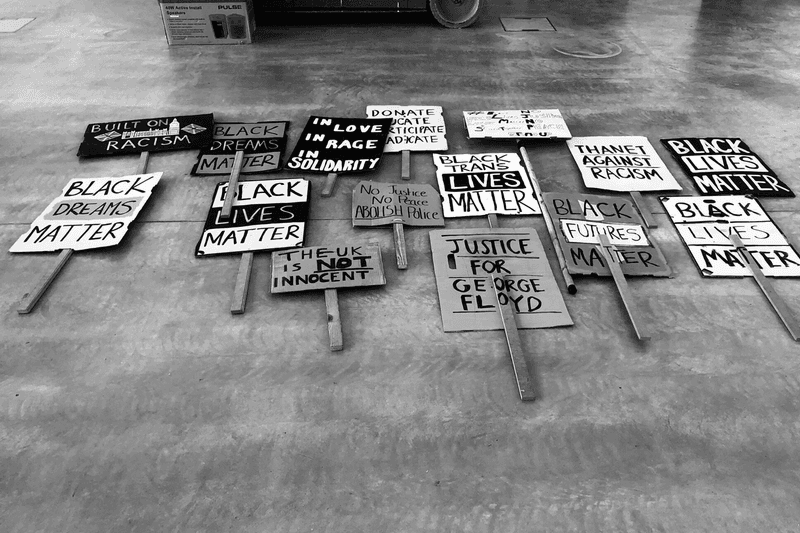 40W Active Install
Speakers
PULSE
BUILT ON
RACISM
BLACK
DREAMS
MATTER
IN LOVE
IN RAGE
IN SOLIDARITY
DONATE
EDUCATE
PARTICIPATE
ADVOCATE
THANET
AGAINST
RACISM
BLACK
LIVES
MATTER
BLACK
DREAMS
MATTER
BLACK
LIVES
MATTER
No Justice
No Peace
ABOLISH POLICE
BLACK
TRANS
LIVES
MATTER
BLACK
FUTURES
MATTER
BLACK
LIVES
MATTER
THE UK
IS NOT
INNOCENT
JUSTICE
FOR
GEORGE
FLOYD